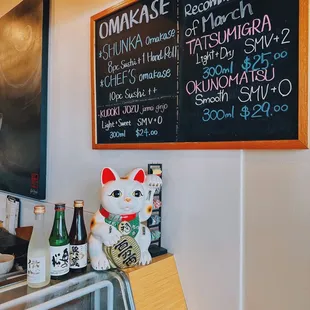 OMAKASE
*SHUNKA omakase
8pc Sushi + 1 Hand Roll
*CHEF'S omakase
10pc Sushi ++
KUDOKI JOZU jummai ginjo
Light + Sweet SMV+0
300ml $24.00
Recommend
of March
TATSUMIGRA
Light + Dry SMV+2
300ml $25.00
OKUNOMATSU
Smooth SMV+0
300ml $29.00